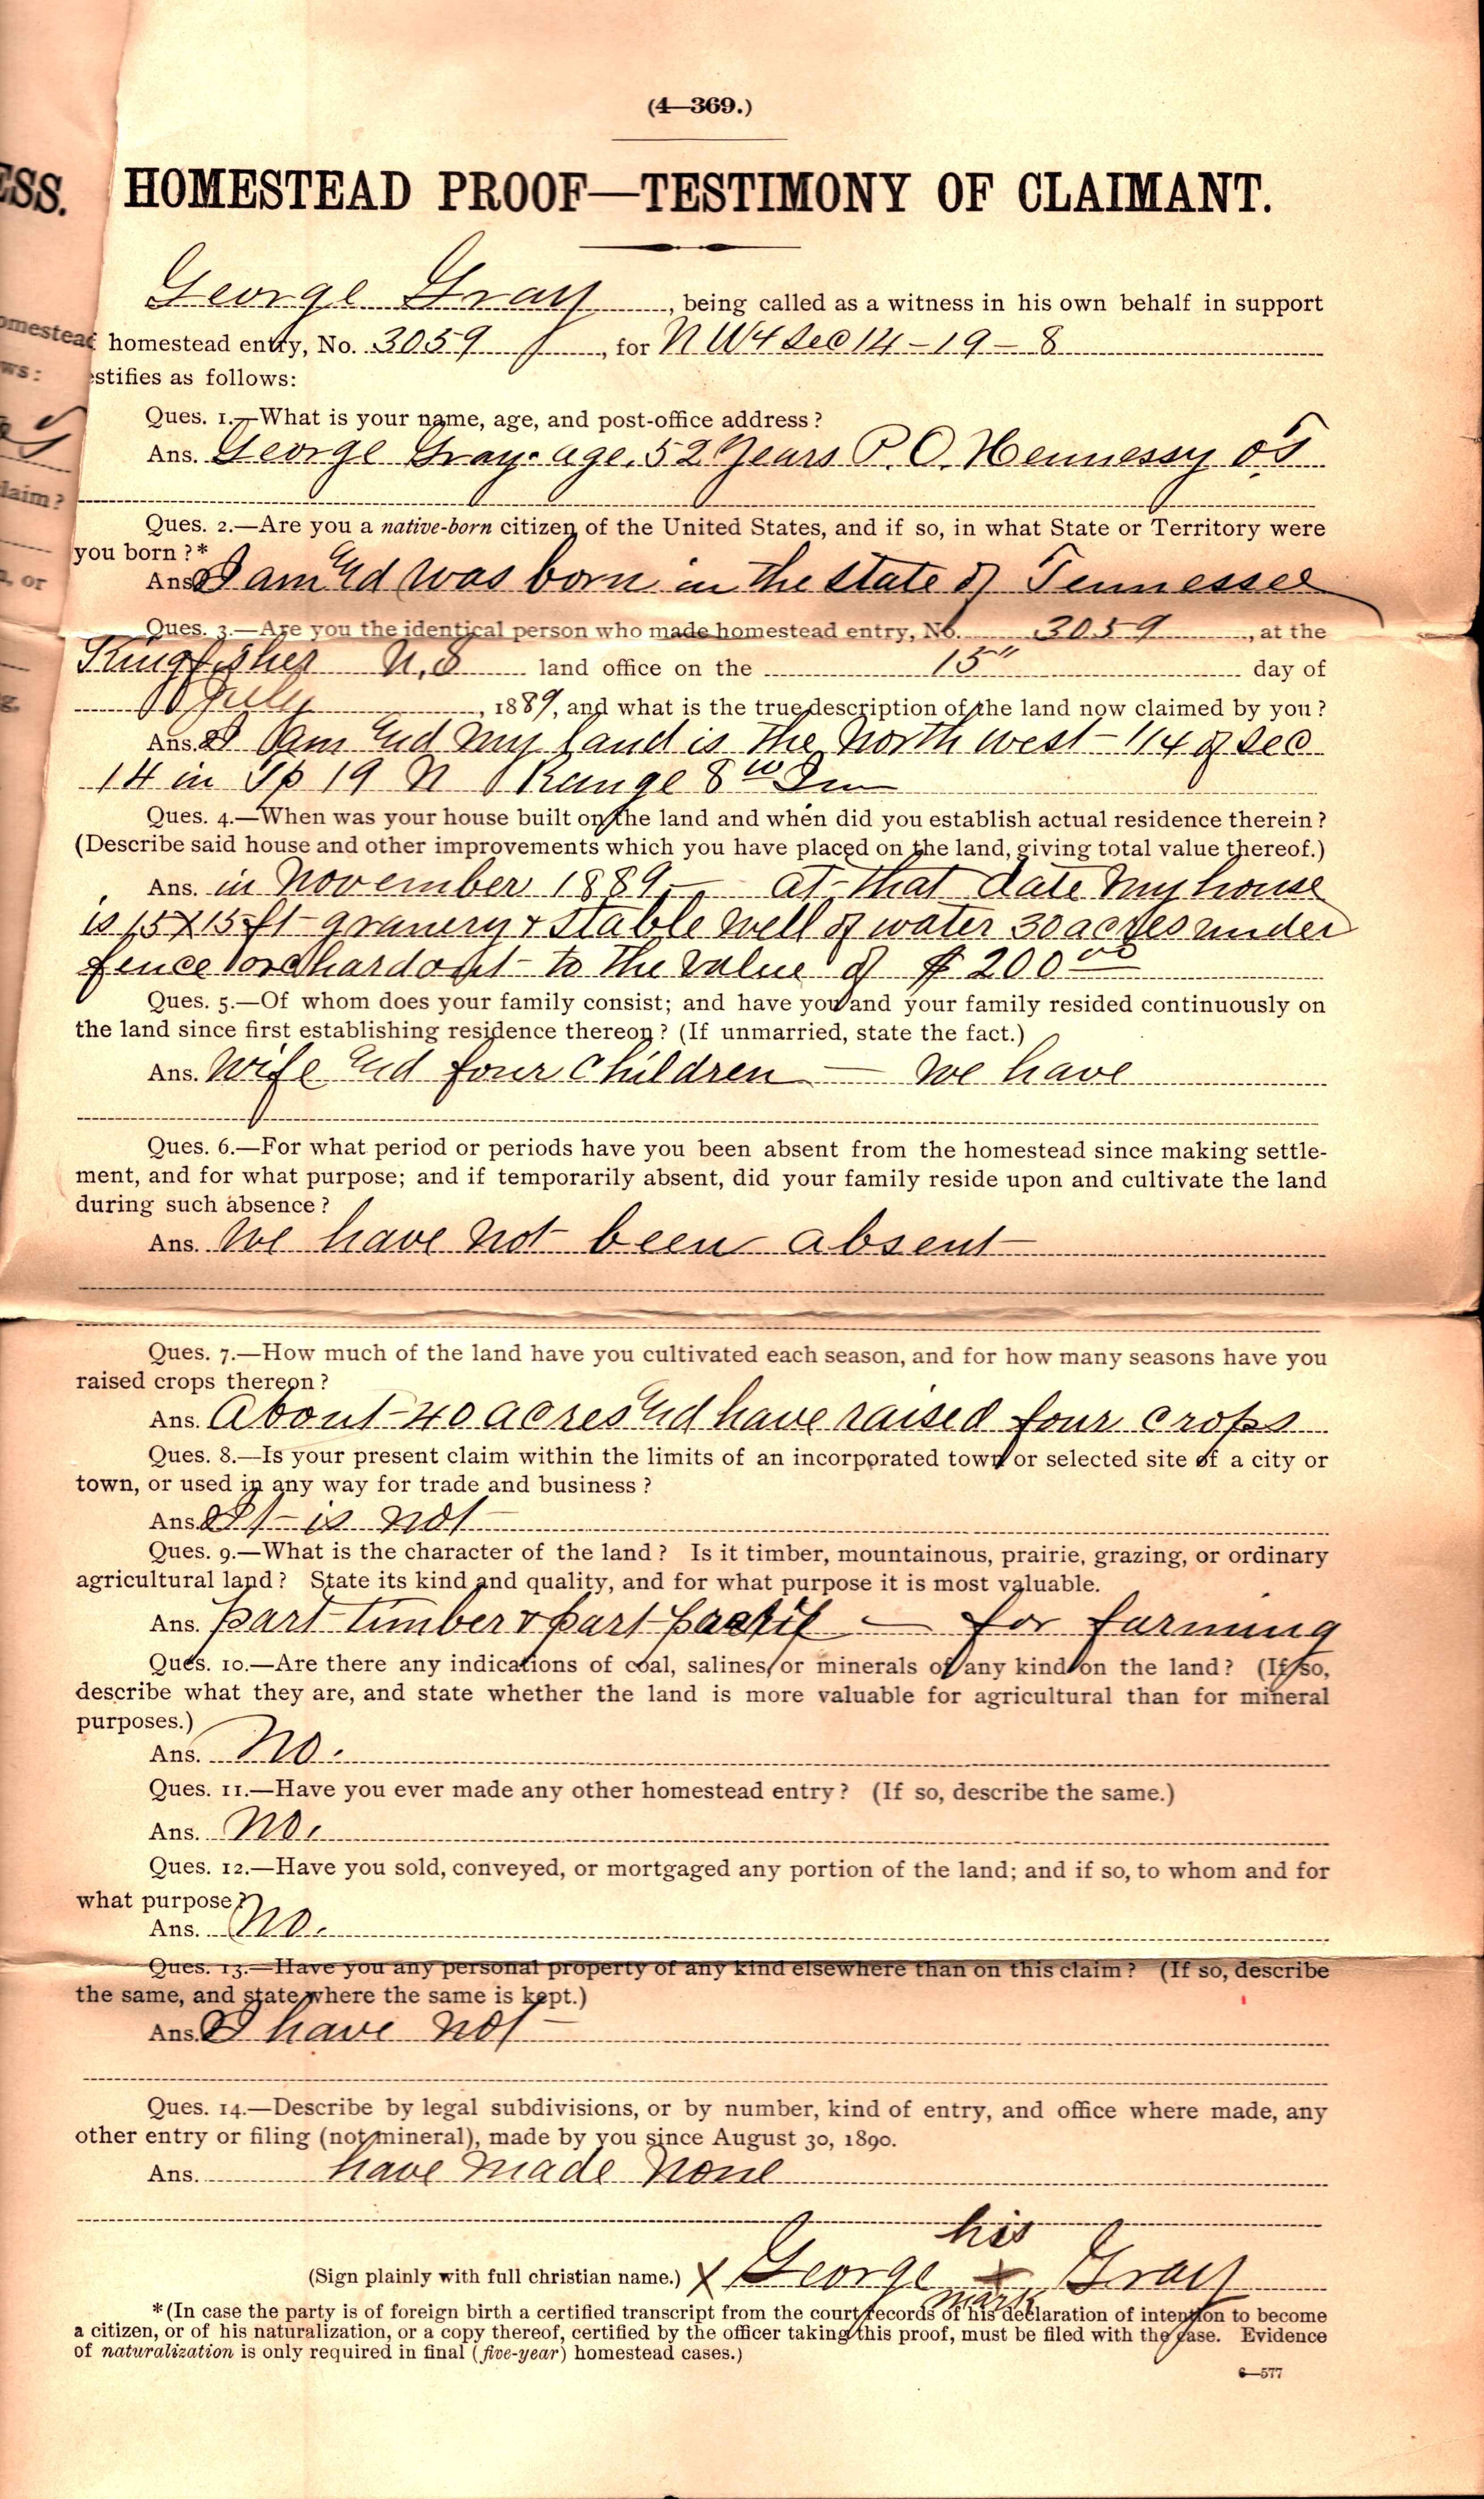 (4—369.)
ESS.
HOMESTEAD PROOF—TESTIMONY OF CLAIMANT.
George Gray, being called as a witness in his own behalf in support
homestead entry, No. 3059, for NW4 Sec 14-19-8
estifies as follows:
Ques. 1.—What is your name, age, and post-office address?
Ans. George Gray. age. 52 Years P.O. Hennessy O.T.
Ques. 2.—Are you a native-born citizen of the United States, and if so, in what State or Territory were
you born?*
Ans. I am and was born in the state of Tennessee
Ques. 3.—Are you the identical person who made homestead entry, No. 3059, at the
Kingfisher land office on the 15" day of
July, 1889, and what is the true description of the land now claimed by you?
Ans. I am and my land is the North west 1/4 of sec
14 in Tp 19 N Range 8 W I m
Ques. 4.—When was your house built on the land and when did you establish actual residence therein?
(Describe said house and other improvements which you have placed on the land, giving total value thereof.)
Ans. in November 1889 — at that date my house
is 15x15 ft granery & stable well of water 30 acres under
fence orchard out to the value of $200.00
Ques. 5.—Of whom does your family consist; and have you and your family resided continuously on
the land since first establishing residence thereon? (If unmarried, state the fact.)
Ans. Wife and four children — we have
Ques. 6.—For what period or periods have you been absent from the homestead since making settle-
ment, and for what purpose; and if temporarily absent, did your family reside upon and cultivate the land
during such absence?
Ans. We have not been absent
Ques. 7.—How much of the land have you cultivated each season, and for how many seasons have you
raised crops thereon?
Ans. About 40 acres and have raised four crops
Ques. 8.—Is your present claim within the limits of an incorporated town or selected site of a city or
town, or used in any way for trade and business?
Ans. It is not
Ques. 9.—What is the character of the land? Is it timber, mountainous, prairie, grazing, or ordinary
agricultural land? State its kind and quality, and for what purpose it is most valuable.
Ans. part timber & part — for farming
Ques. 10.—Are there any indications of coal, salines, or minerals of any kind on the land? (If so,
describe what they are, and state whether the land is more valuable for agricultural than for mineral
purposes.)
Ans. No.
Ques. 11.—Have you ever made any other homestead entry? (If so, describe the same.)
Ans. No.
Ques. 12.—Have you sold, conveyed, or mortgaged any portion of the land; and if so, to whom and for
what purpose?
Ans. No.
Ques. 13.—Have you any personal property of any kind elsewhere than on this claim? (If so, describe
the same, and state where the same is kept.)
Ans. I have not
Ques. 14.—Describe by legal subdivisions, or by number, kind of entry, and office where made, any
other entry or filing (not mineral), made by you since August 30, 1890.
Ans. have made none
his
(Sign plainly with full christian name.) X George x Gray
mark
*(In case the party is of foreign birth a certified transcript from the court records of his declaration of intention to become
a citizen, or of his naturalization, or a copy thereof, certified by the officer taking this proof, must be filed with the case. Evidence
of naturalization is only required in final (five-year) homestead cases.)
6—577